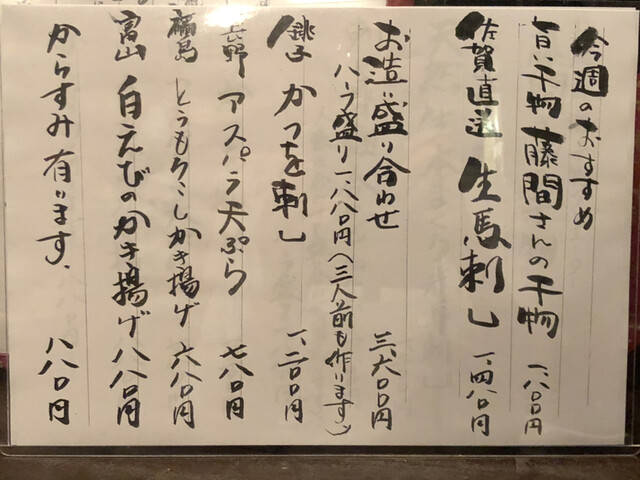 今週のおすすめ
旨い干物 藤間さんの干物 一、八〇〇円
佐賀直送 生馬刺し 一、四八〇円
お造り盛り合わせ 三、六〇〇円
ハーフ盛り 一、八八〇円(三人前も作ります)
銚子 かつを刺し 一、二〇〇円
長野 アスパラ天ぷら 七八〇円
福島 とうもろこしかき揚げ 六八〇円
富山 白えびのかき揚げ 八八〇円
からすみ有ります、 八八〇円